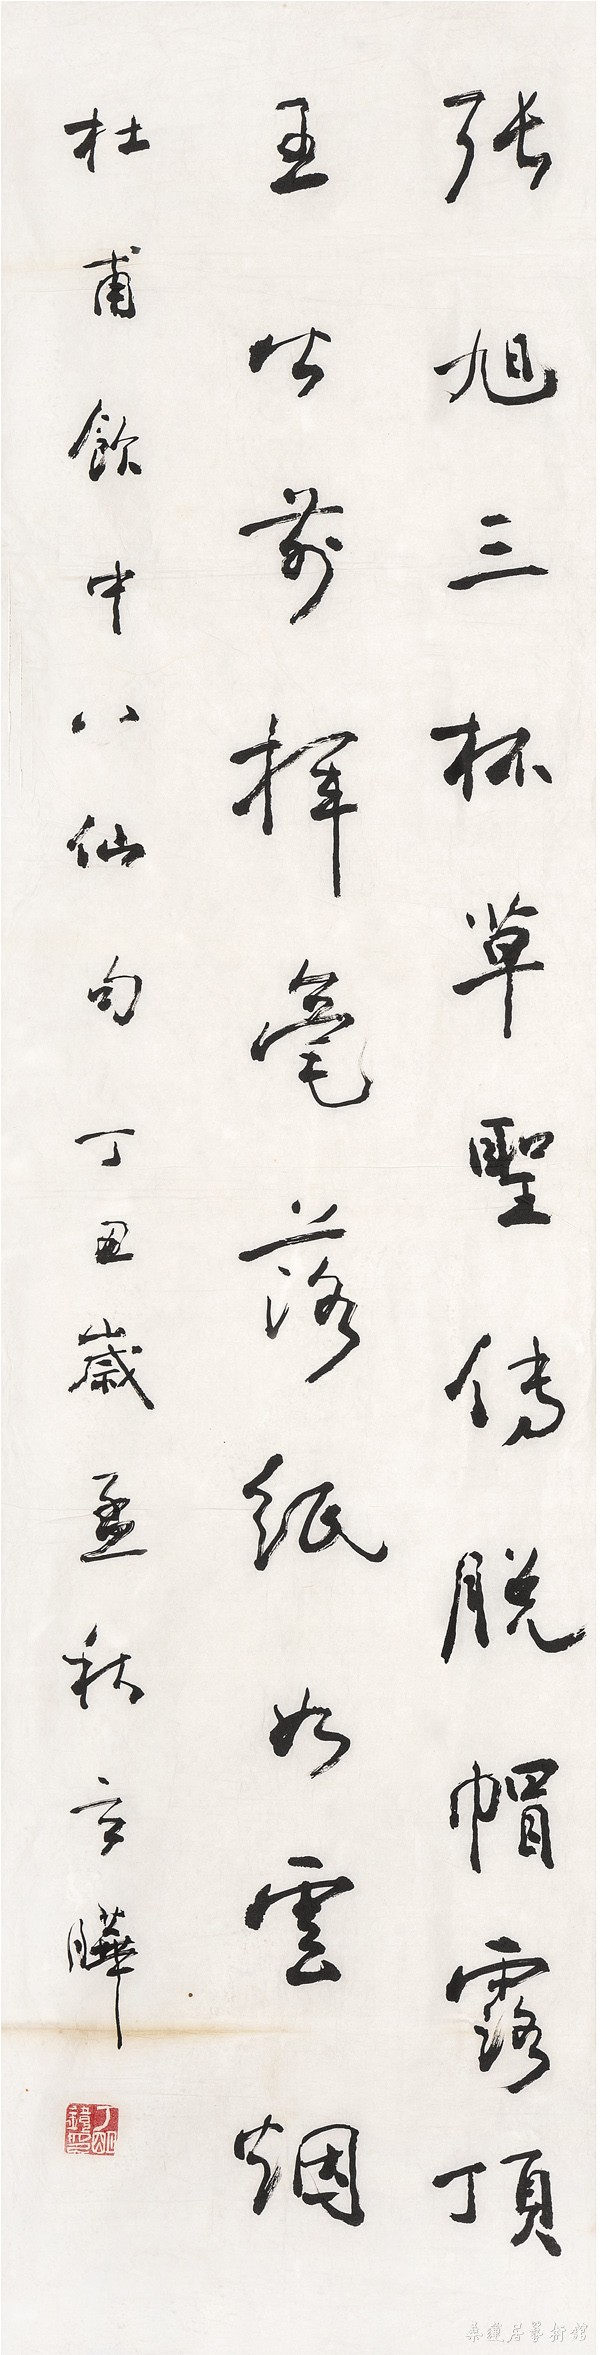 張旭三杯草聖傳脫帽露頂
王公前揮毫落紙如雲烟
杜甫飲中八仙句丁丑歲孟秋言曄